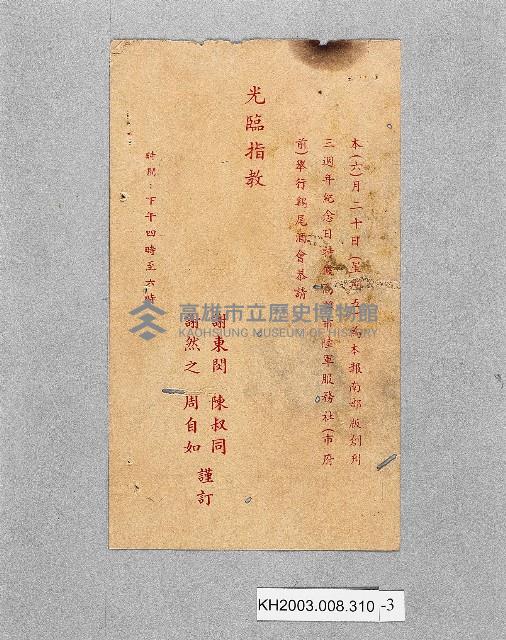 本(六)月二十日(星期五)為本報南部版創刊
三週年紀念日 市陸軍服務社(市府
前)舉行鷄尾酒會恭請
光臨指教
謝東閔 陳叔同
謝然之 周自如
謹訂
時間:下午四時至六時
高雄市立歷史博物館
KAOHSIUNG MUSEUM OF HISTORY
KH2003.008.310 -3